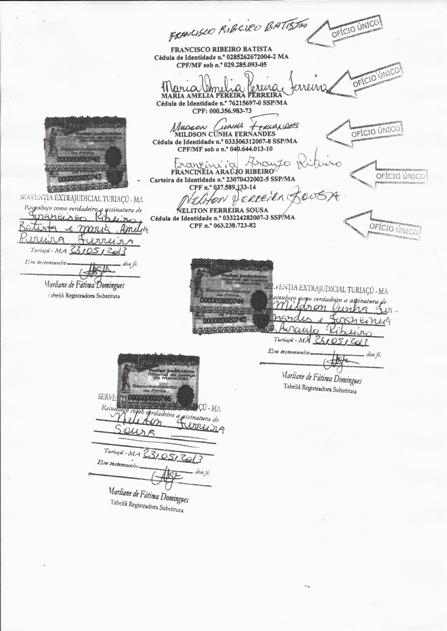 FRANCISCO RIBEIRO BATISTA
OFÍCIO ÚNICO
FRANCISCO RIBEIRO BATISTA
Cédula de Identidade n.º 0285262672004-2 MA
CPF/MF sob n.º 029.285.093-05
Maria Amelia Pereira Ferreira
OFÍCIO ÚNICO
MARIA AMELIA PEREIRA FERREIRA
Cédula de Identidade nº 76215697-0 SSP/MA
CPF: 000.356.983-73
MILDSON CUNHA FERNANDES
OFÍCIO ÚNICO
MILDSON CUNHA FERNANDES
Cédula de Identidade nº 033306312007-8 SSP/MA
CPF/MF sob o nº 040.644.013-10
Francinéia Araujo Ribeiro
OFÍCIO ÚNICO
FRANCINÉIA ARAÚJO RIBEIRO
Carteira de Identidade nº 23070432002-5 SSP/MA
CPF nº 037.589.133-14
NELITON FERREIRA SOUSA
OFÍCIO ÚNICO
NELITON FERREIRA SOUSA
Cédula de Identidade nº 033224282007-3 SSP/MA
CPF nº 063.238.723-82
Poder Judiciário
SERVENTIA EXTRAJUDICIAL TURIAÇÚ - MA
Reconheço como verdadeiro a assinatura de
Francisco Ribeiro
Batista e Maria Amelia
Pereira Ferreira
Turiaçú - MA 23/05/2013
Em testemunho da fé.
Marliane de Fátima Domingues
Tabeliã Registradora Substituta
SERVENTIA EXTRAJUDICIAL TURIAÇÚ - MA
Reconheço como verdadeiro a assinatura de
Mildson Cunha Fer-
nandes e Francineia
Araujo Ribeiro
Turiaçú - MA 23/05/2013
Em testemunho da fé.
Marliane de Fátima Domingues
Tabeliã Registradora Substituta
Poder Judiciário
SERVENTIA EXTRAJUDICIAL TURIAÇÚ - MA
Reconheço como verdadeiro a assinatura de
Neliton Ferreira
Sousa
Turiaçú - MA 23/05/2013
Em testemunho da fé.
Marliane de Fátima Domingues
Tabeliã Registradora Substituta